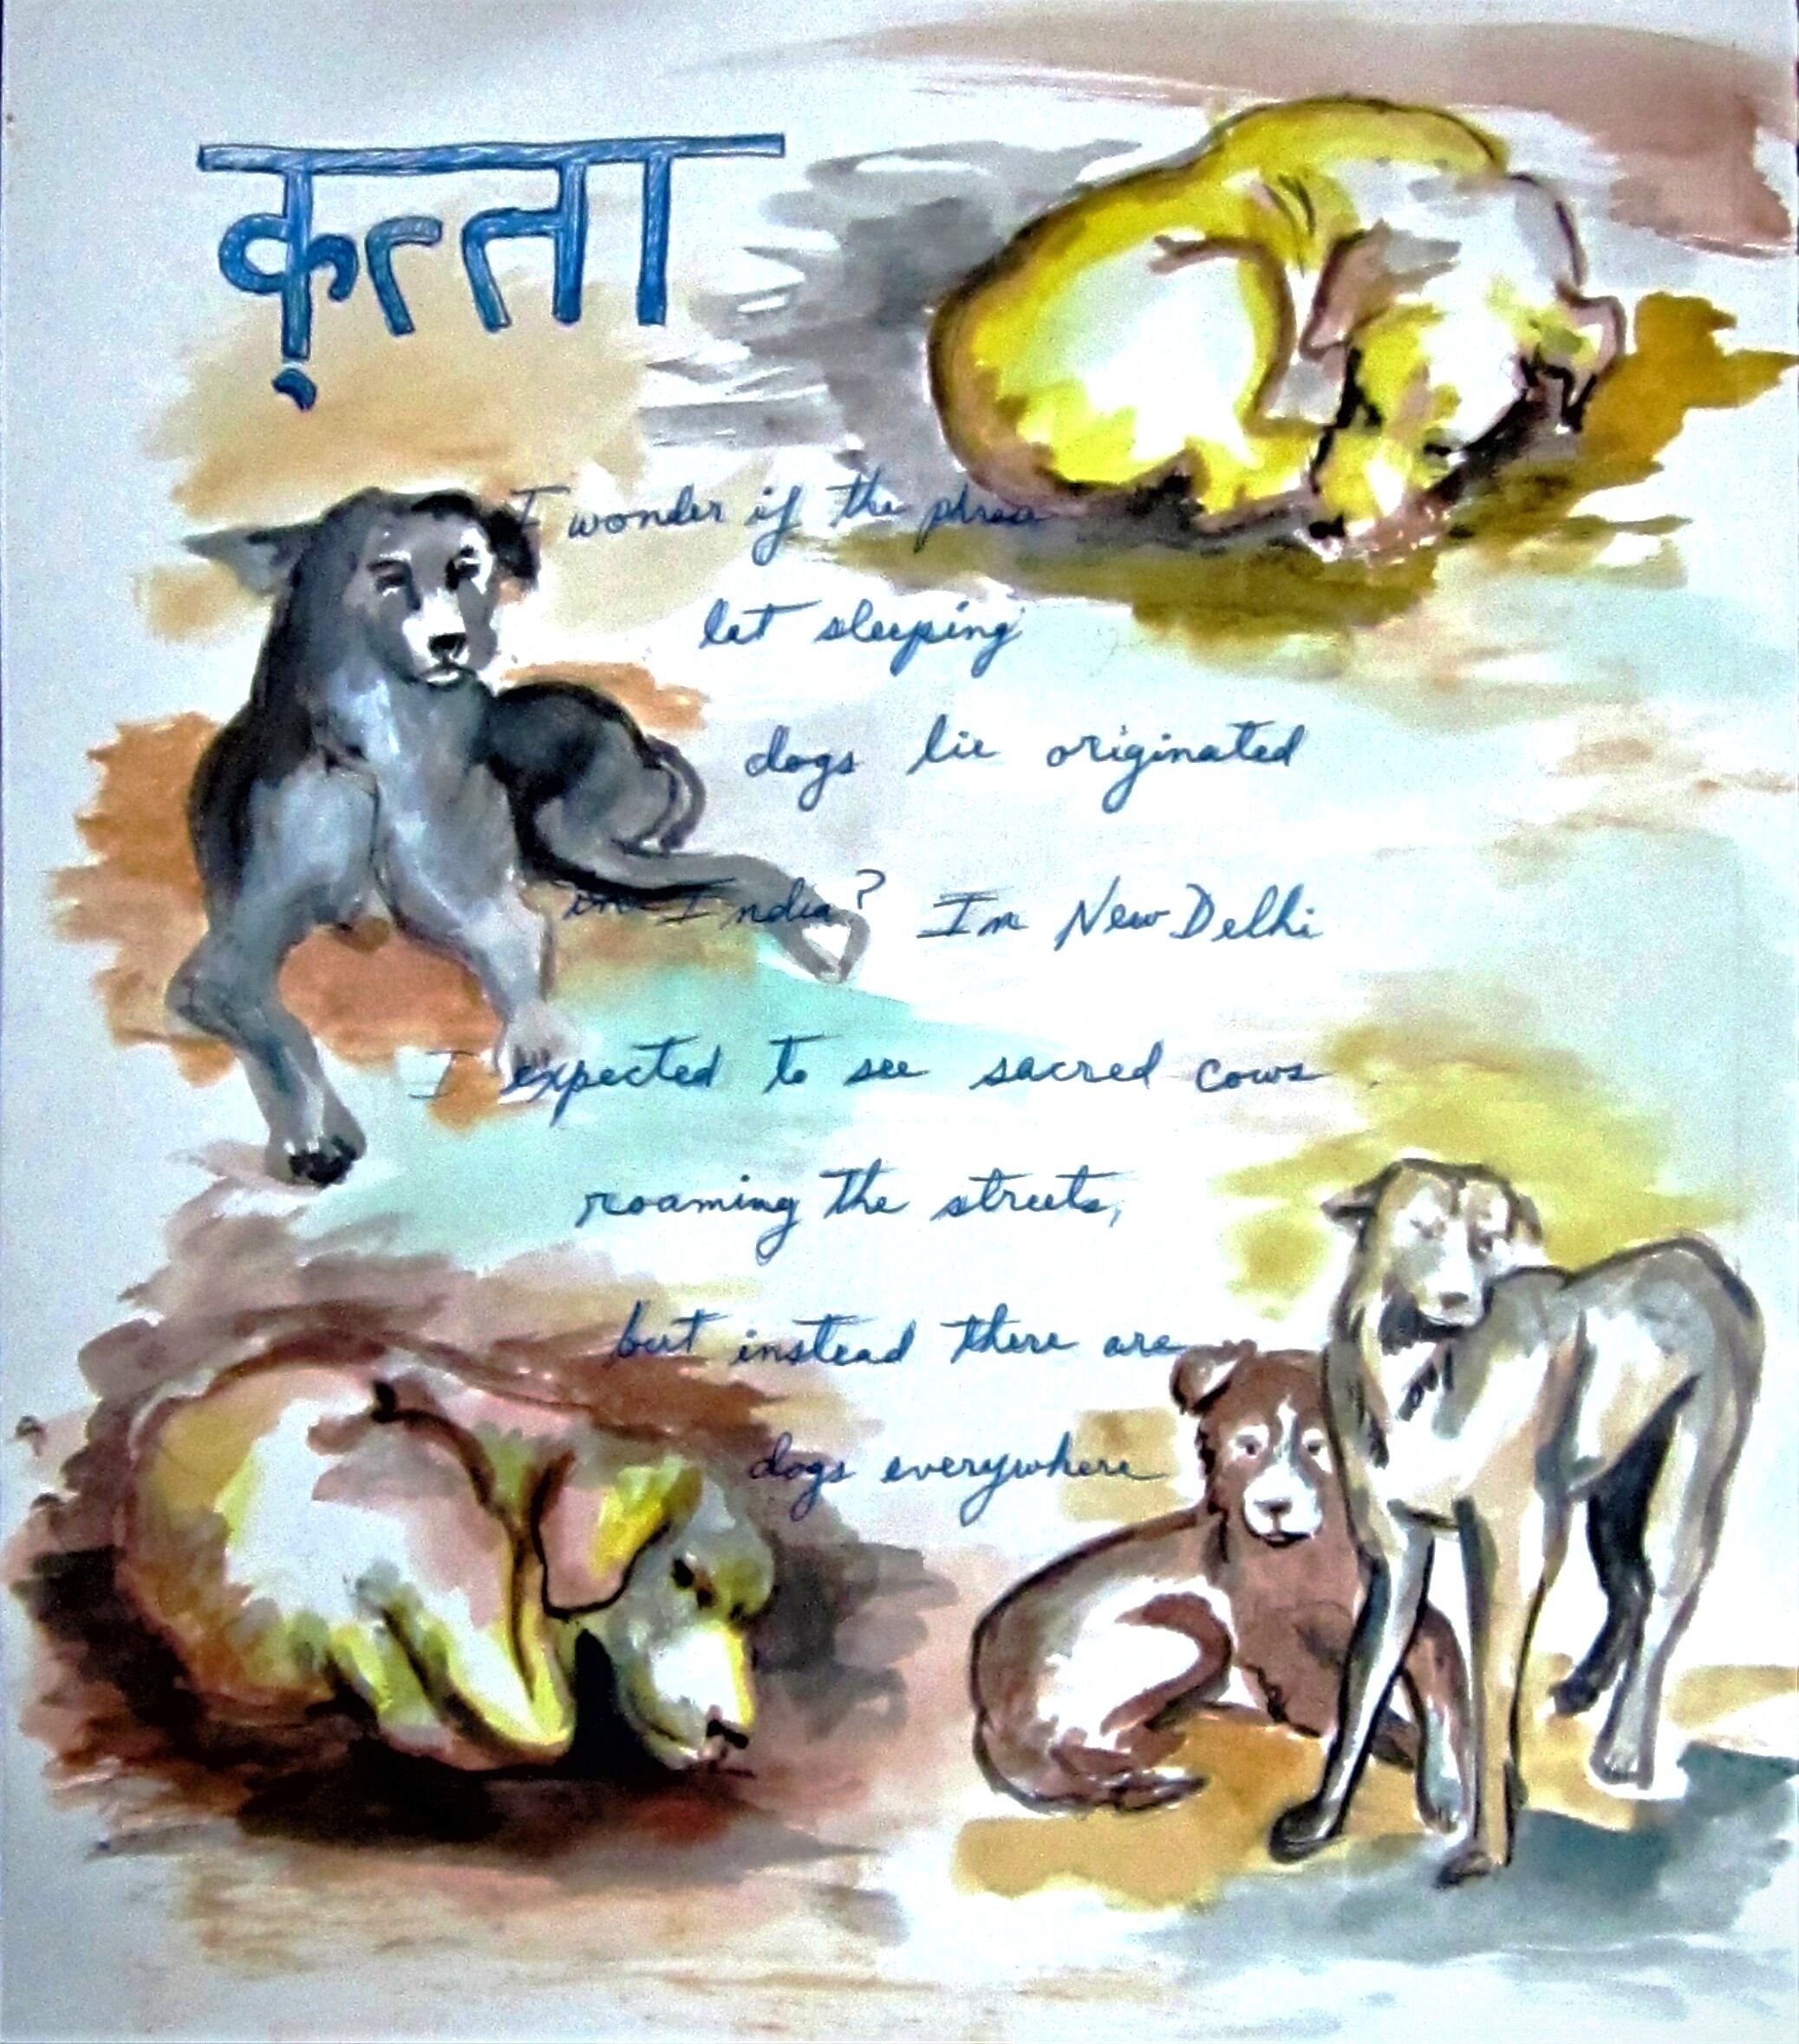 कुत्ता
I wonder if the phrase
let sleeping
dogs lie originated
in India? In New Delhi
I expected to see sacred cows
roaming the streets,
but instead there are
dogs everywhere